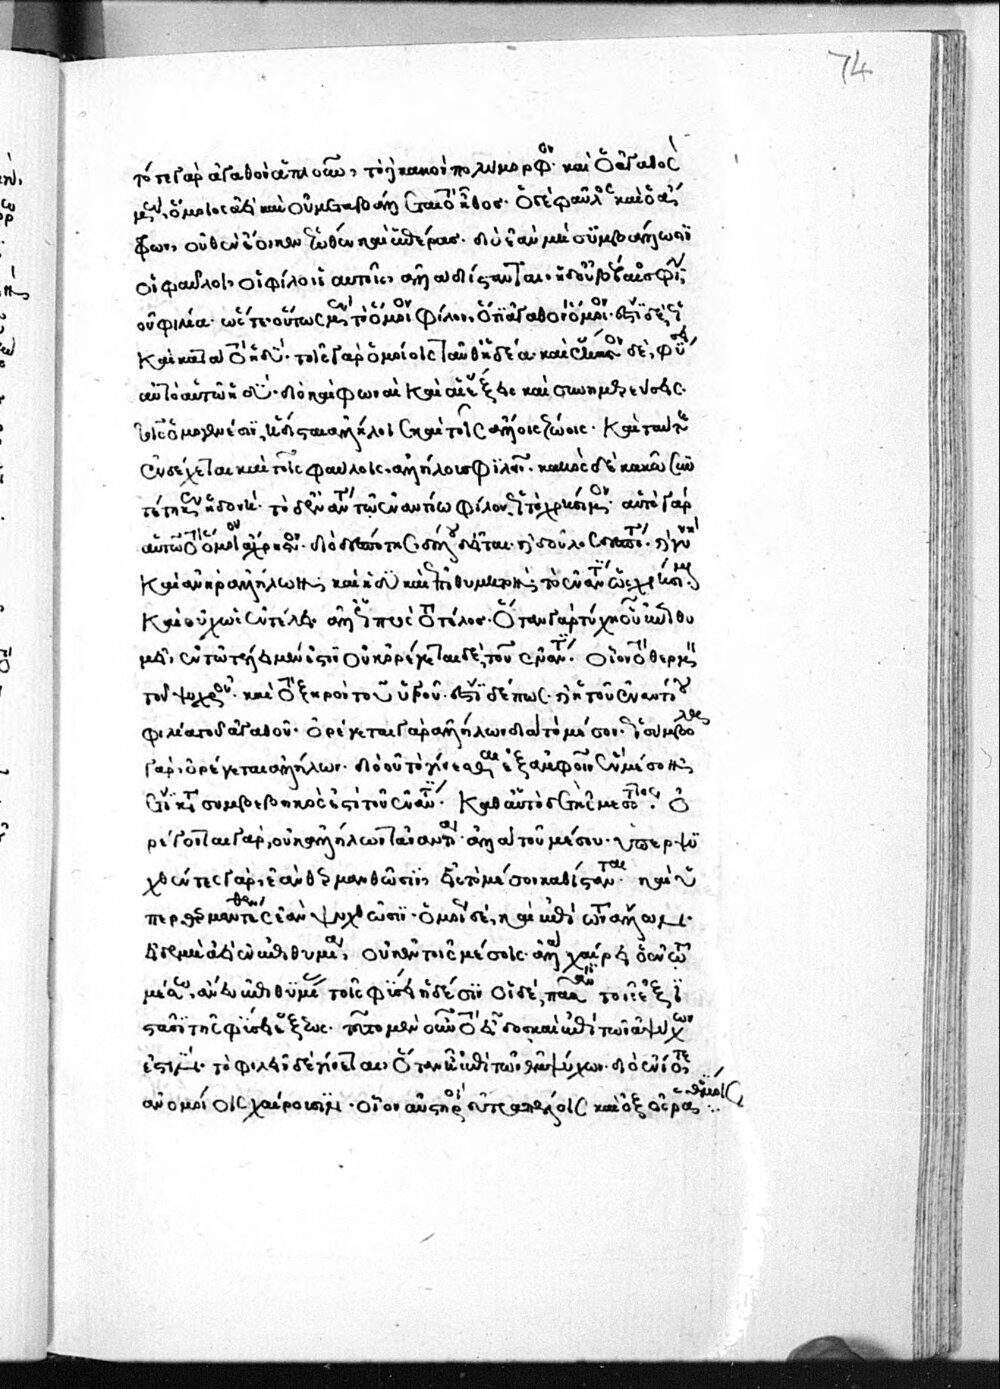 τό τε γὰρ ἀγαθὸν ἁπλοῦν, τὸ δὲ κακὸν πολύμορφον· καὶ ὁ ἀγαθὸς
μὲν, ὅμοιος ἀεὶ καὶ οὐ μεταβάλλεται τὸ ἦθος· ὁ δὲ φαῦλος καὶ ὁ ἄ
φρων, οὐθὲν ἔοικεν ἕωθεν καὶ ἑσπέρας· διὸ ἐὰν μὴ συμβάλλωσιν
οἱ φαῦλοι, οἱ φίλοι αὑτοῖς, ἀλλὰ διίστανται, ἡ δ' οὐ βέβαιος φιλία
οὐ φιλία· ὥστε οὕτως μὲν τὸ ὅμοιον φίλον, ὅτι τἀγαθὸν ὅμοιον· ἔστι δὲ ὡς
καὶ κατὰ τὸ ἡδύ· τοῖς γὰρ ὁμοίοις ταῦθ' ἡδέα· καὶ ἕκαστον δὲ, φύσει
αὐτὸ αὑτῷ ἡδύ· διὸ καὶ φωναὶ καὶ αἱ ἕξεις καὶ συνημερεύσεις·
τοῖς ὁμογενέσιν, ἥδισται ἀλλήλοις καὶ τοῖς ἄλλοις ζῴοις· καὶ ταύτῃ
ἐνδέχεται καὶ τοῖς φαύλοις, ἀλλήλους φιλεῖν· κακὸς δὲ κακῷ συν
τέτηκεν ἡδονῇ· τὸ δ' ἐναντίον τῷ ἐναντίῳ φίλον ὡς τὸ χρήσιμον· αὐτὸ γὰρ
αὑτῷ τὸ ὅμοιον ἄχρηστον· διὸ δεσπότης δούλου δεῖται· καὶ δοῦλος δεσπότου· καὶ γυνὴ
καὶ ἀνὴρ ἀλλήλων· καὶ ἡδὺ καὶ ἐπιθυμητὸν τὸ ἐναντίον ὡς χρήσιμον
καὶ οὐχ ὡς ἐν τέλει· ἀλλ' ὡς πρὸς τὸ τέλος· ὅταν γὰρ τύχῃ οὗ ἐπιθυ
μεῖ, ἐν τῷ τέλει μέν ἐστιν οὐκ ὀρέγεται δὲ, τοῦ ἐναντίου· οἷον τὸ θερμὸν
τοῦ ψυχροῦ· καὶ τὸ ξηρὸν τοῦ ὑγροῦ· ἔστι δέ πως· καὶ ἡ τοῦ ἐναντίου
φιλία τοῦ ἀγαθοῦ· ὀρέγεται γὰρ ἀλλήλων διὰ τὸ μέσον· ὡς σύμβολα
γὰρ, ὀρέγεται ἀλλήλων· διὸ οὕτω γίνεσθαι ἐξ ἀμφοῖν ἓν μέσον·
ἔτι κατὰ συμβεβηκός ἐστι τοῦ ἐναντίου· καθ' αὑτὸ δὲ τῆς μεσότητος· ὀ
ρέγονται γὰρ, οὐκ ἀλλήλων τἀναντία· ἀλλὰ τοῦ μέσου· ὑπερψυ
χθέντες γὰρ, ἐὰν θερμανθῶσιν, εἰς τὸ μέσον καθίστανται· καὶ ὑ
περθερμανθέντες ἐὰν ψυχθῶσιν· ὁμοίως δὲ, καὶ ἐπὶ τῶν ἄλλων·
εἰ δὲ μὴ ἀεὶ ἐν ἐπιθυμίᾳ, οὐκ ἐν τοῖς μέσοις· ἀλλὰ χαίρει ὁ ἐν τῷ
μέσῳ, ἄνευ ἐπιθυμίας τοῖς φύσει ἡδέσιν οἱ δὲ, πᾶσι τοῖς ἐξι
στᾶσι τῆς φύσει ἕξεως· τοῦτο μὲν οὖν τὸ εἶδος καὶ ἐπὶ τῶν ἀψύχων
ἐστίν· τὸ φιλεῖν δὲ γίνεται, ὅταν ᾖ ἐπὶ τῶν ἐμψύχων· διὸ ἐνίοτε
ἀνομοίοις χαίρουσιν· οἷον αὐστηροὶ εὐτραπέλοις καὶ ὀξεῖς ῥᾳθύμοις
74